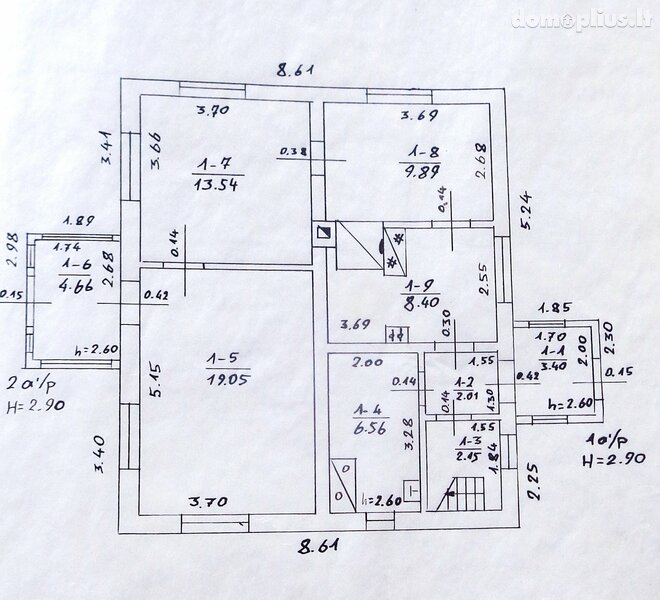 domoplius.lt
8.61
3.70
3.69
3.41
3.66
0.38
1-7
13.54
1-8
9.89
2.68
0.14
5.24
1.89
2.98
1.74
1-6
4.66
2.68
0.14
0.15
0.42
1-9
8.40
2.55
3.69
0.30
1.85
1.70
2.00
2.30
1-1
3.40
0.15
0.42
h=2.60
h=2.60
5.15
1-5
19.05
2.00
1.55
0.14
1-2
2.01
1.30
0.14
2 a¹/p
H=2.90
1-4
6.56
3.28
1.55
1-3
2.15
1.84
1a¹/p
H=2.90
3.40
2.25
h=2.60
3.70
8.61